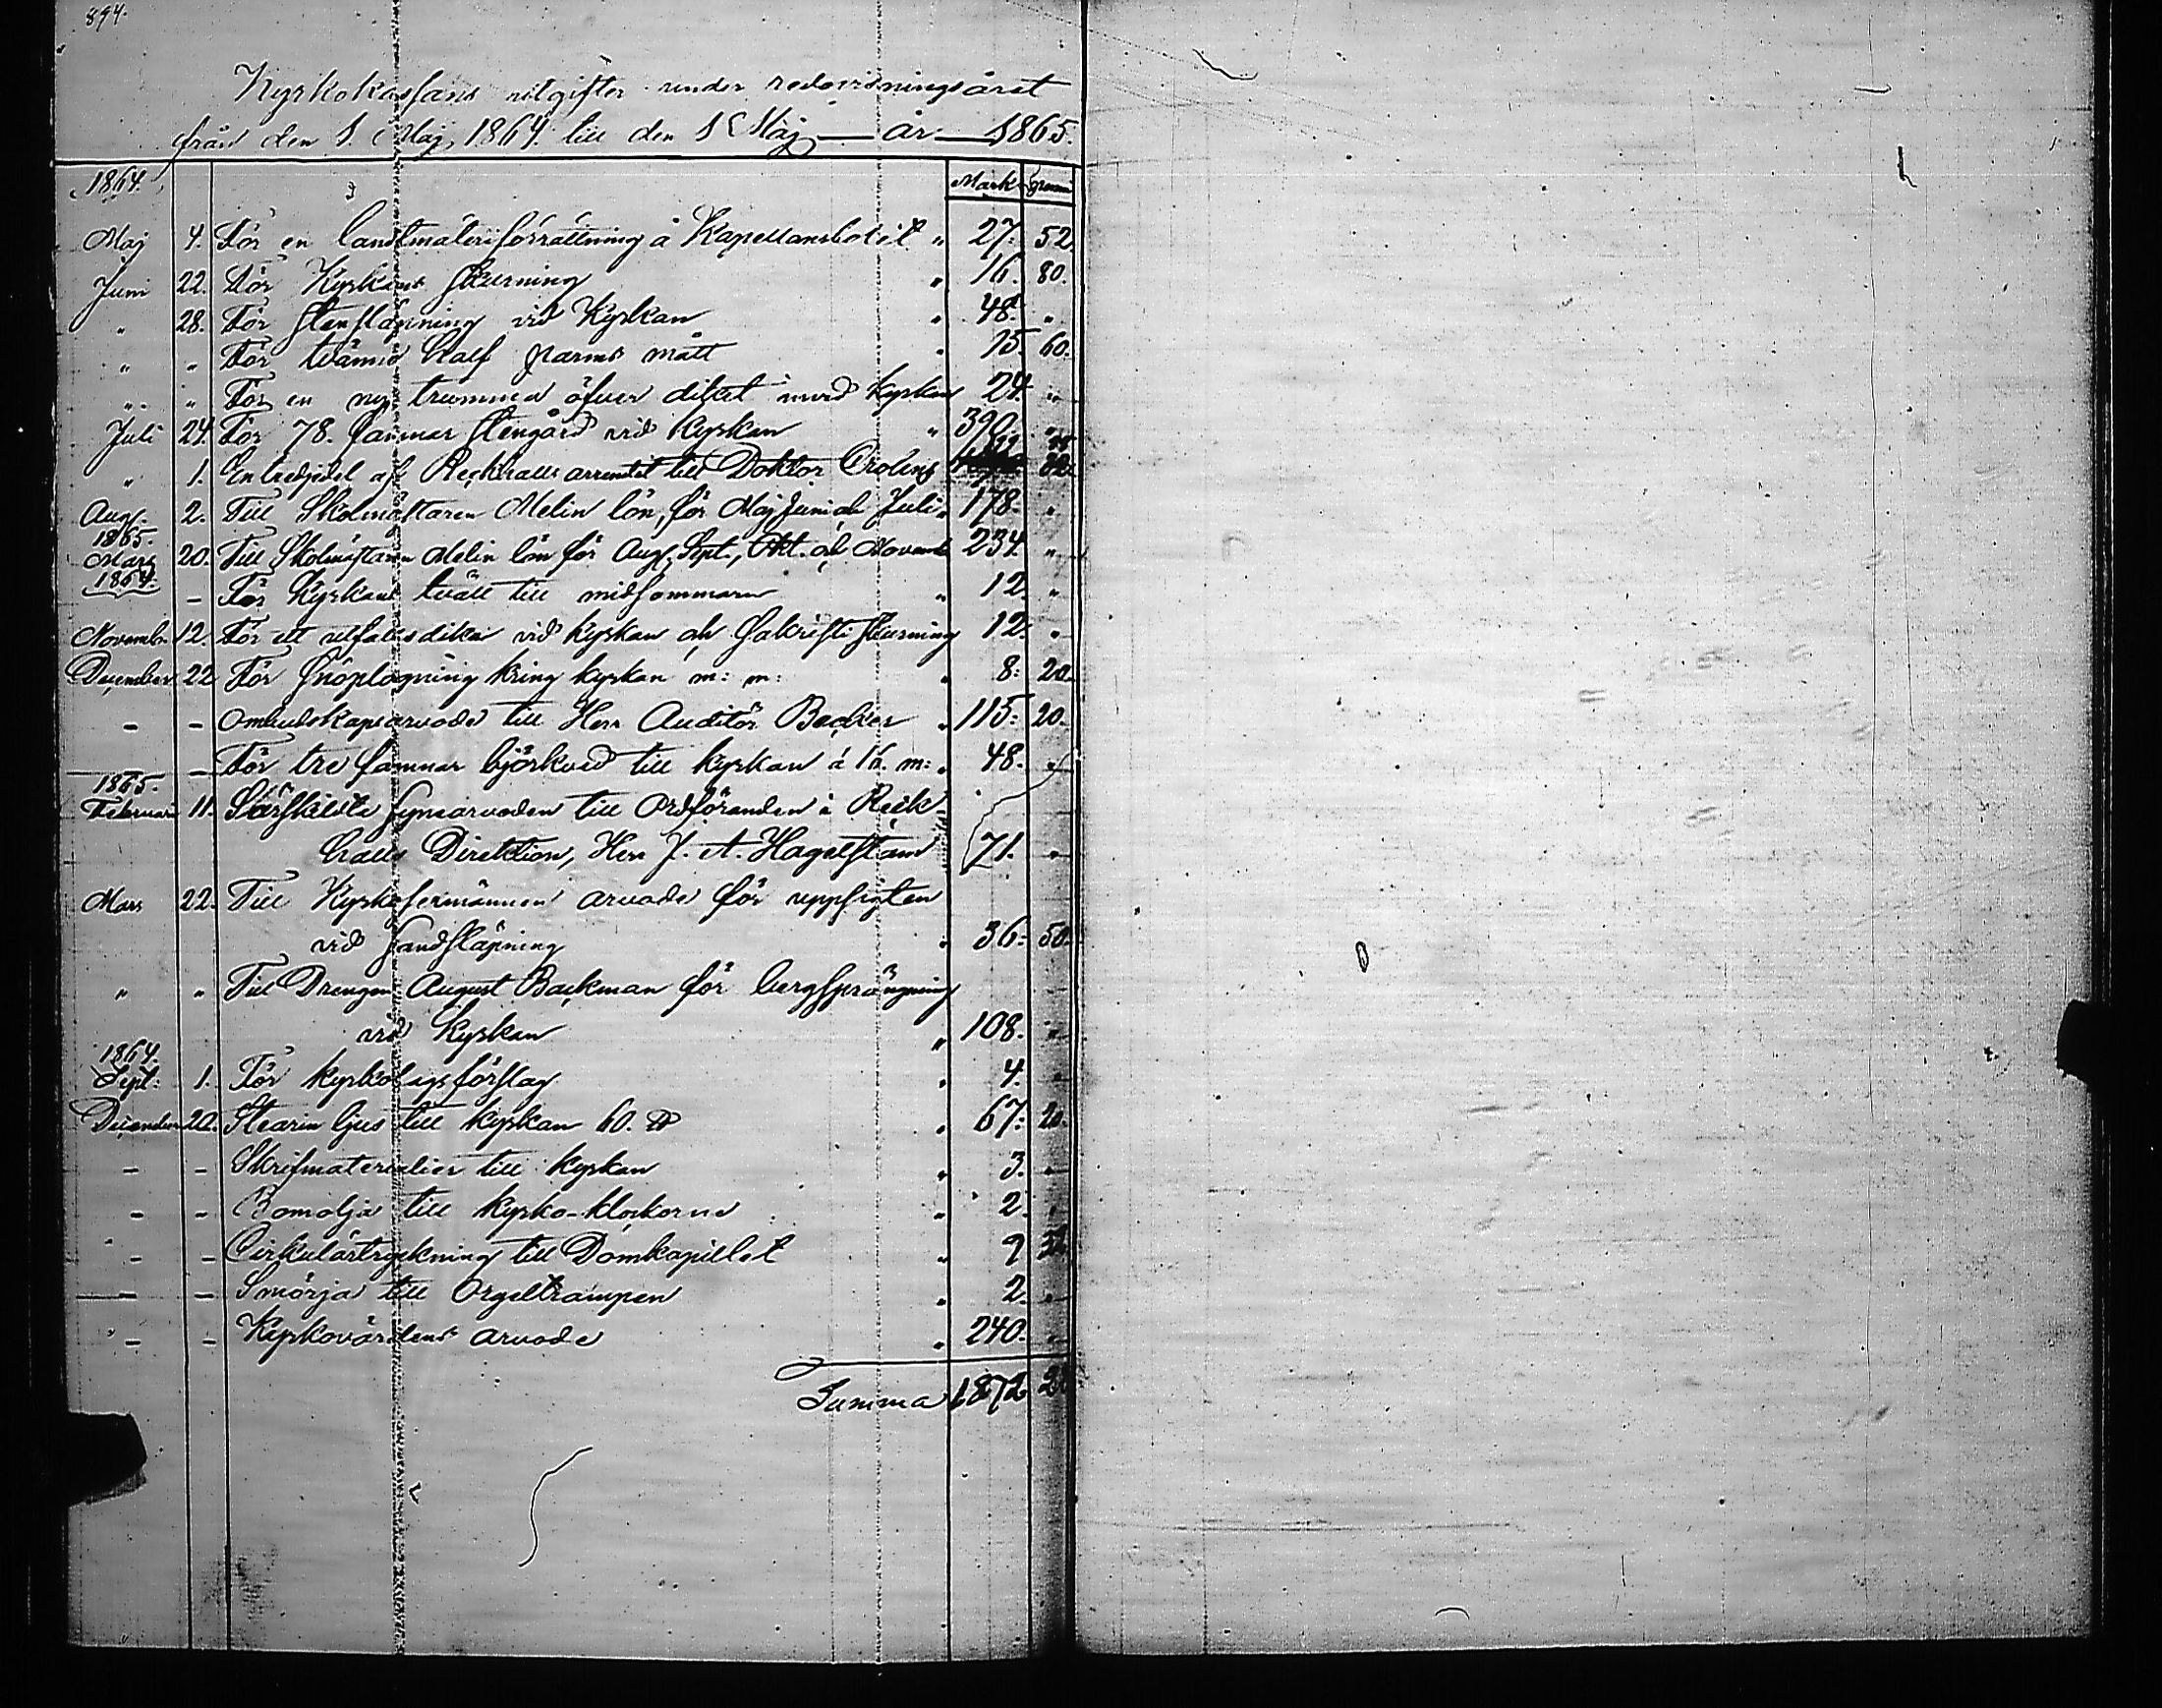 894.
Kyrkokassans utgifter under redovisningsåret
från den 1. Maj 1864 till den 1 Maj — år — 1865.
1864. Mark penni
Maj 4. För en landtmäteriförrättning å Kapellansbolet " 27: 52
Juni 22. För Kyrkans skurning " 16. 80.
" 28. För stensläpning vid Kyrkan " 48. "
" " För tvänne half famns mått " 15. 60.
" " För en ny trumma öfver diket invid kyrkan 24. "
Juli 24. För 78. famnar stengård vid Kyrkan " 390. "
" 1. En tredjedel af Reckhalls arrendet till Doktor
Aug. 2. Till Skolmästaren Melin lön, för Maj Juni och Juli " 178. "
1865.
Mars 20. Till Skolmästaren Melin lön för Aug. Sept., Okt. och Novemb 234. "
1864.
– För Kyrkans tvätt till midsommaren " 12. "
Novemb. 12. För ett utfallsdike vid kyrkan och sakristi skurning 12. "
December 22 För snöplogning kring kyrkan m: m: " 8: 20.
– – Ombudskapsarvode till Herr Auditör Becker " 115: 20.
– – För tre famnar björkved till kyrkan á 16. m: " 48. "
1865.
Februari 11. Särskilda synearvoden till Ordföranden i Reck-
halls Direktion, Herr J. A. Hagelstam 71. "
Mars 22. Till Kyrkosexmännen arvode för uppsigten
vid sandsläpning " 36: 50.
" " Till Drengen August Backman för bergsprängning
vid Kyrkan " 108. "
1864.
Sept: 1. För kyrkolagsförslag " 4. "
December 20. Stearin ljus till kyrkan 60. ℔ " 67: 20.
– – Skrifmaterialier till kyrkan " 3. "
– – Bomolja till kyrko-klockorna " 2. "
– – Cirkulärtryckning till Domkapitlet " 9
– – Smörja till Orgeltrampen " 2. "
– – Kyrkovärdens arvode " 240. "
Summa 1872